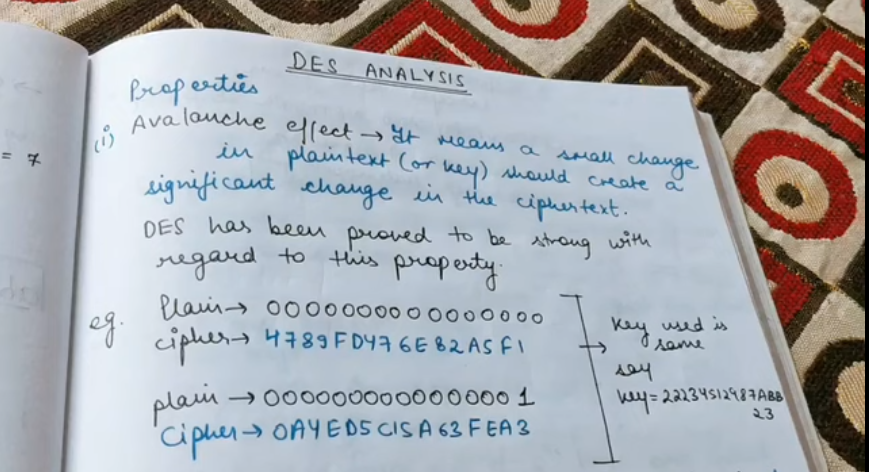 = 7
DES ANALYSIS
Properties
(i) Avalanche effect → It means a small change
in plaintext (or key) should create a
significant change in the ciphertext.
DES has been proved to be strong with
regard to this property.
eg. Plain → 0000000000000000
cipher → 4789FD476E82A5F1
plain → 0000000000000001
Cipher → 0A4ED5C15A63FEA3
Key used is
same
say
key = 22234512987ABB
23